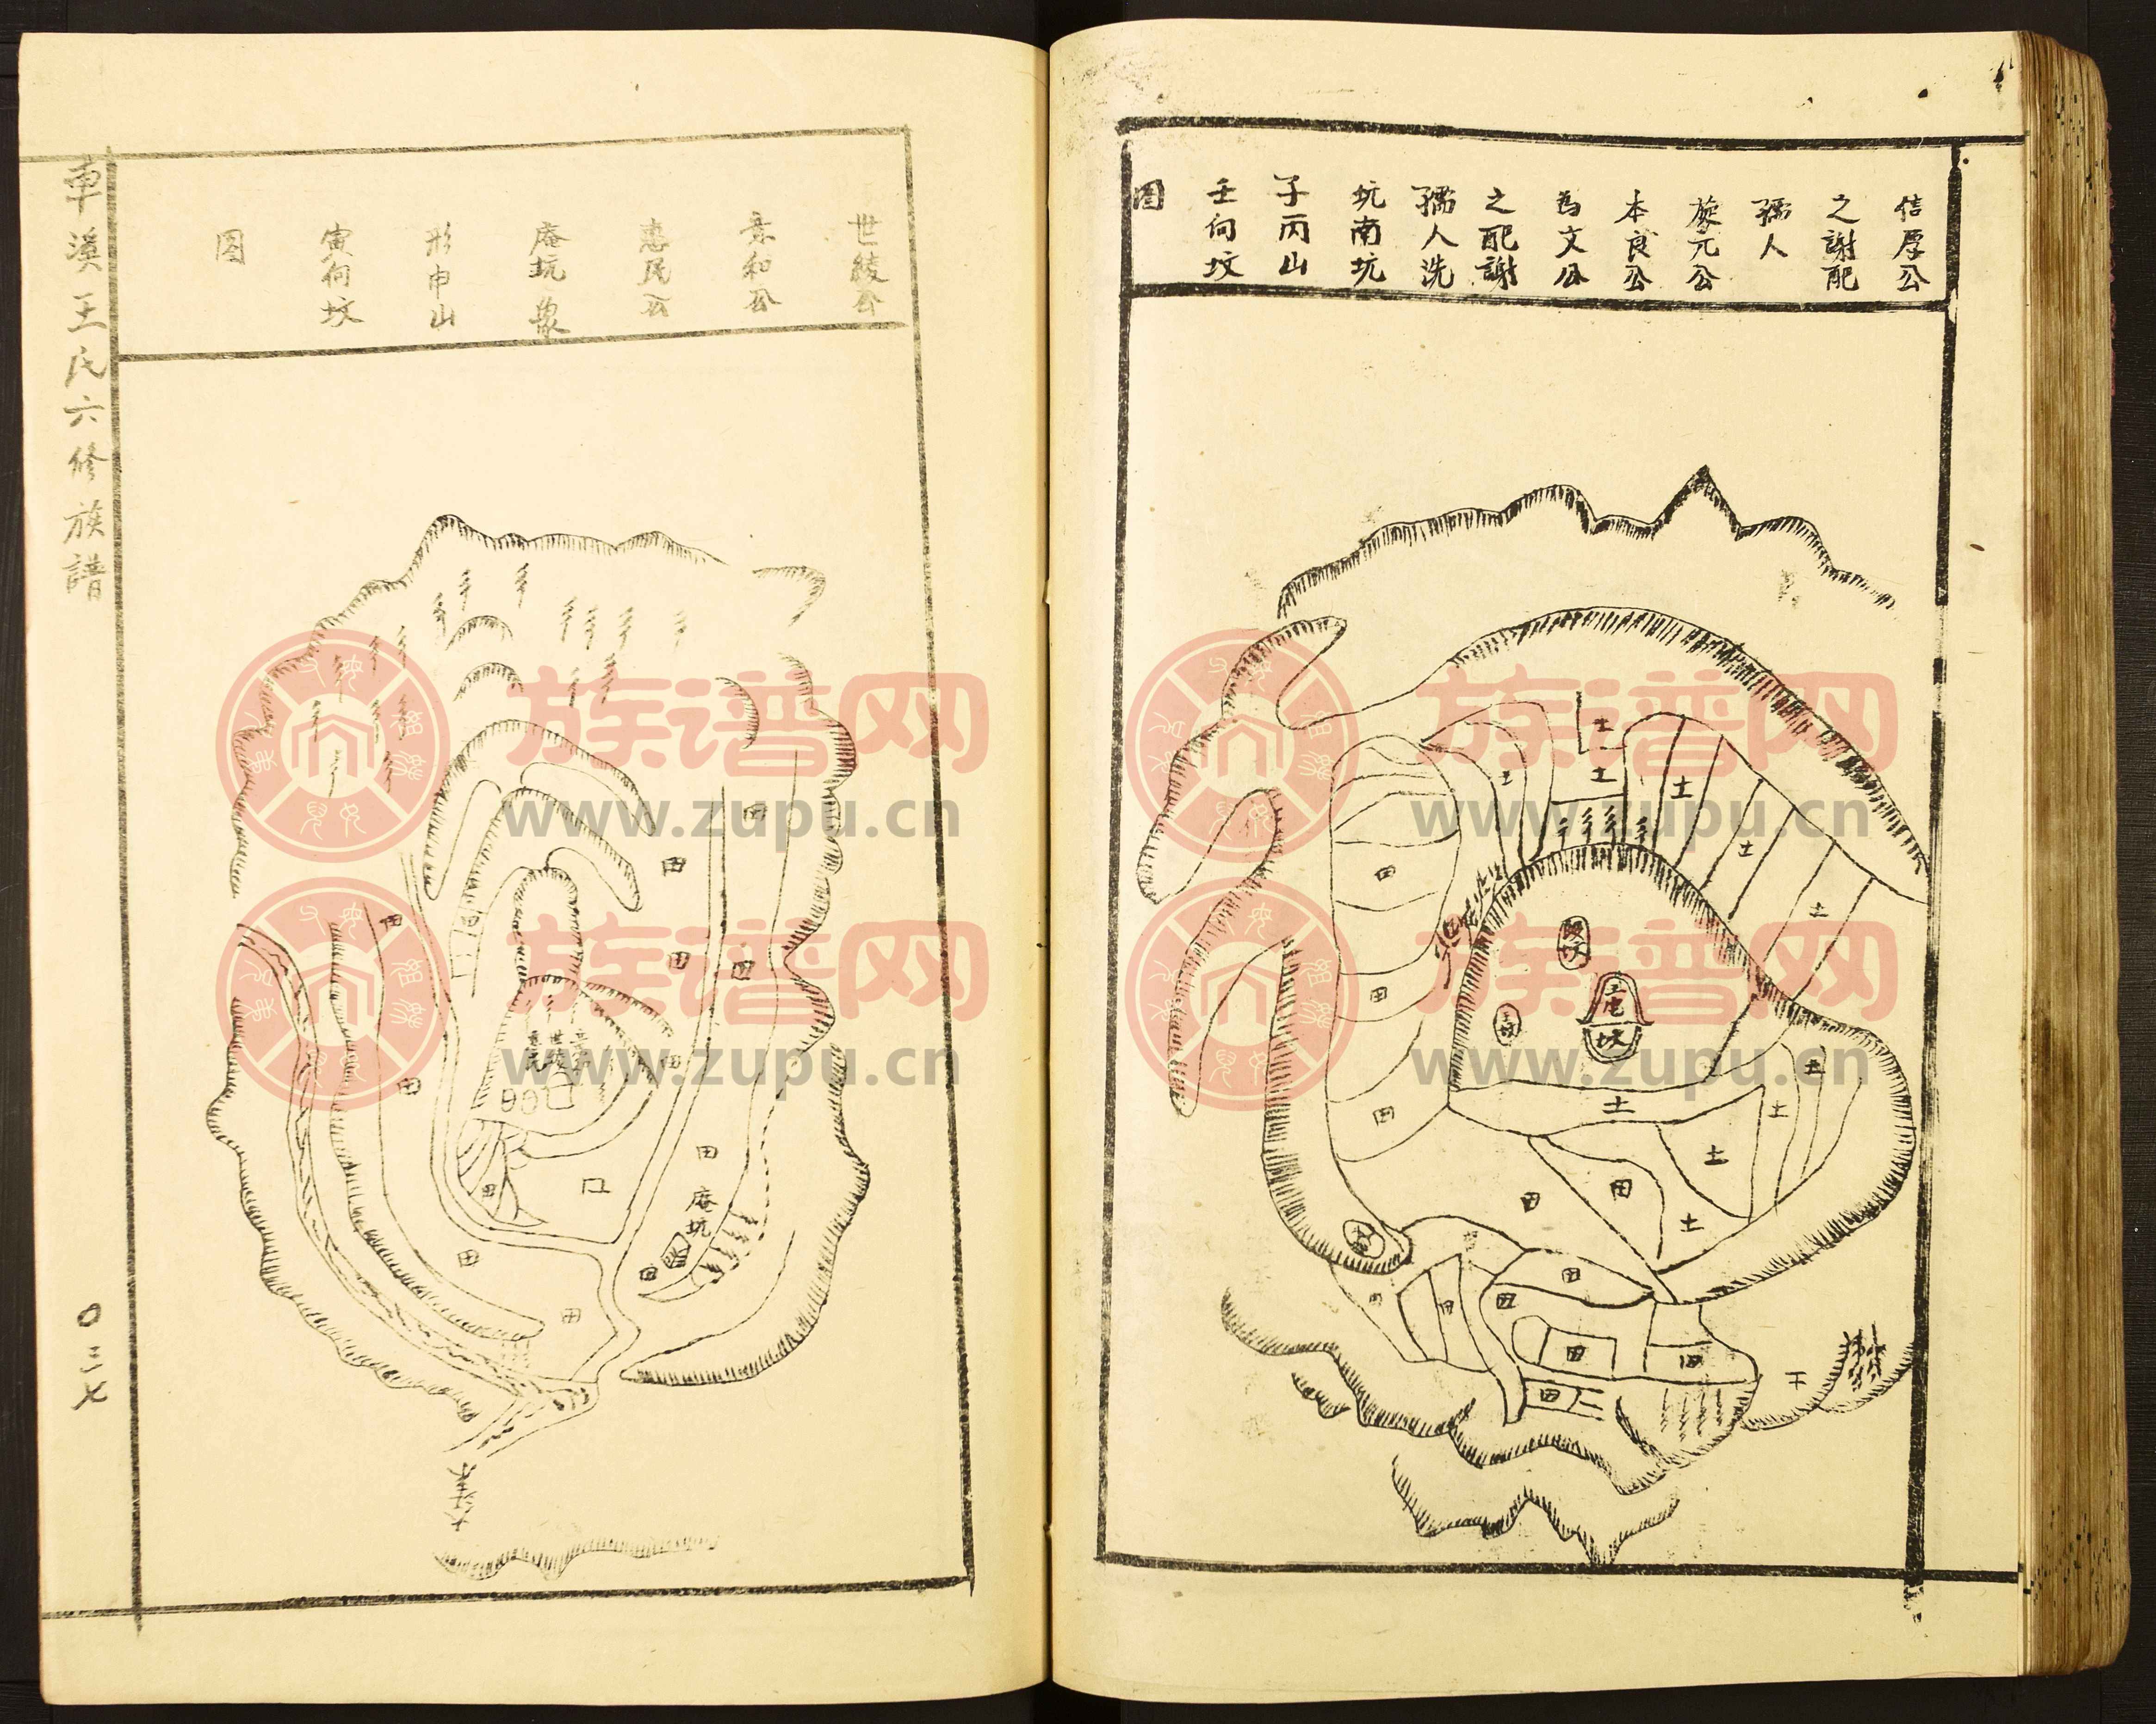 信厚公
之謝配
孺人
旋元公
本良公
為文公
之配謝
孺人洗
坑南坑
子丙山
壬向坟
图
土
土
土
土
土
土
田
田
田
坟
土
土
土
土
土
田
田
田
田
田
田
田
世绫公
惠民公
庵坑象
形申山
寅向坟
图
田
田
田
田
田
田
田
田
庵坑
田
田
田
車溪王氏六修族譜
〇三七
族谱网
www.zupu.cn
族谱网
www.zupu.cn
族谱网
www.zupu.cn
族谱网
www.zupu.cn